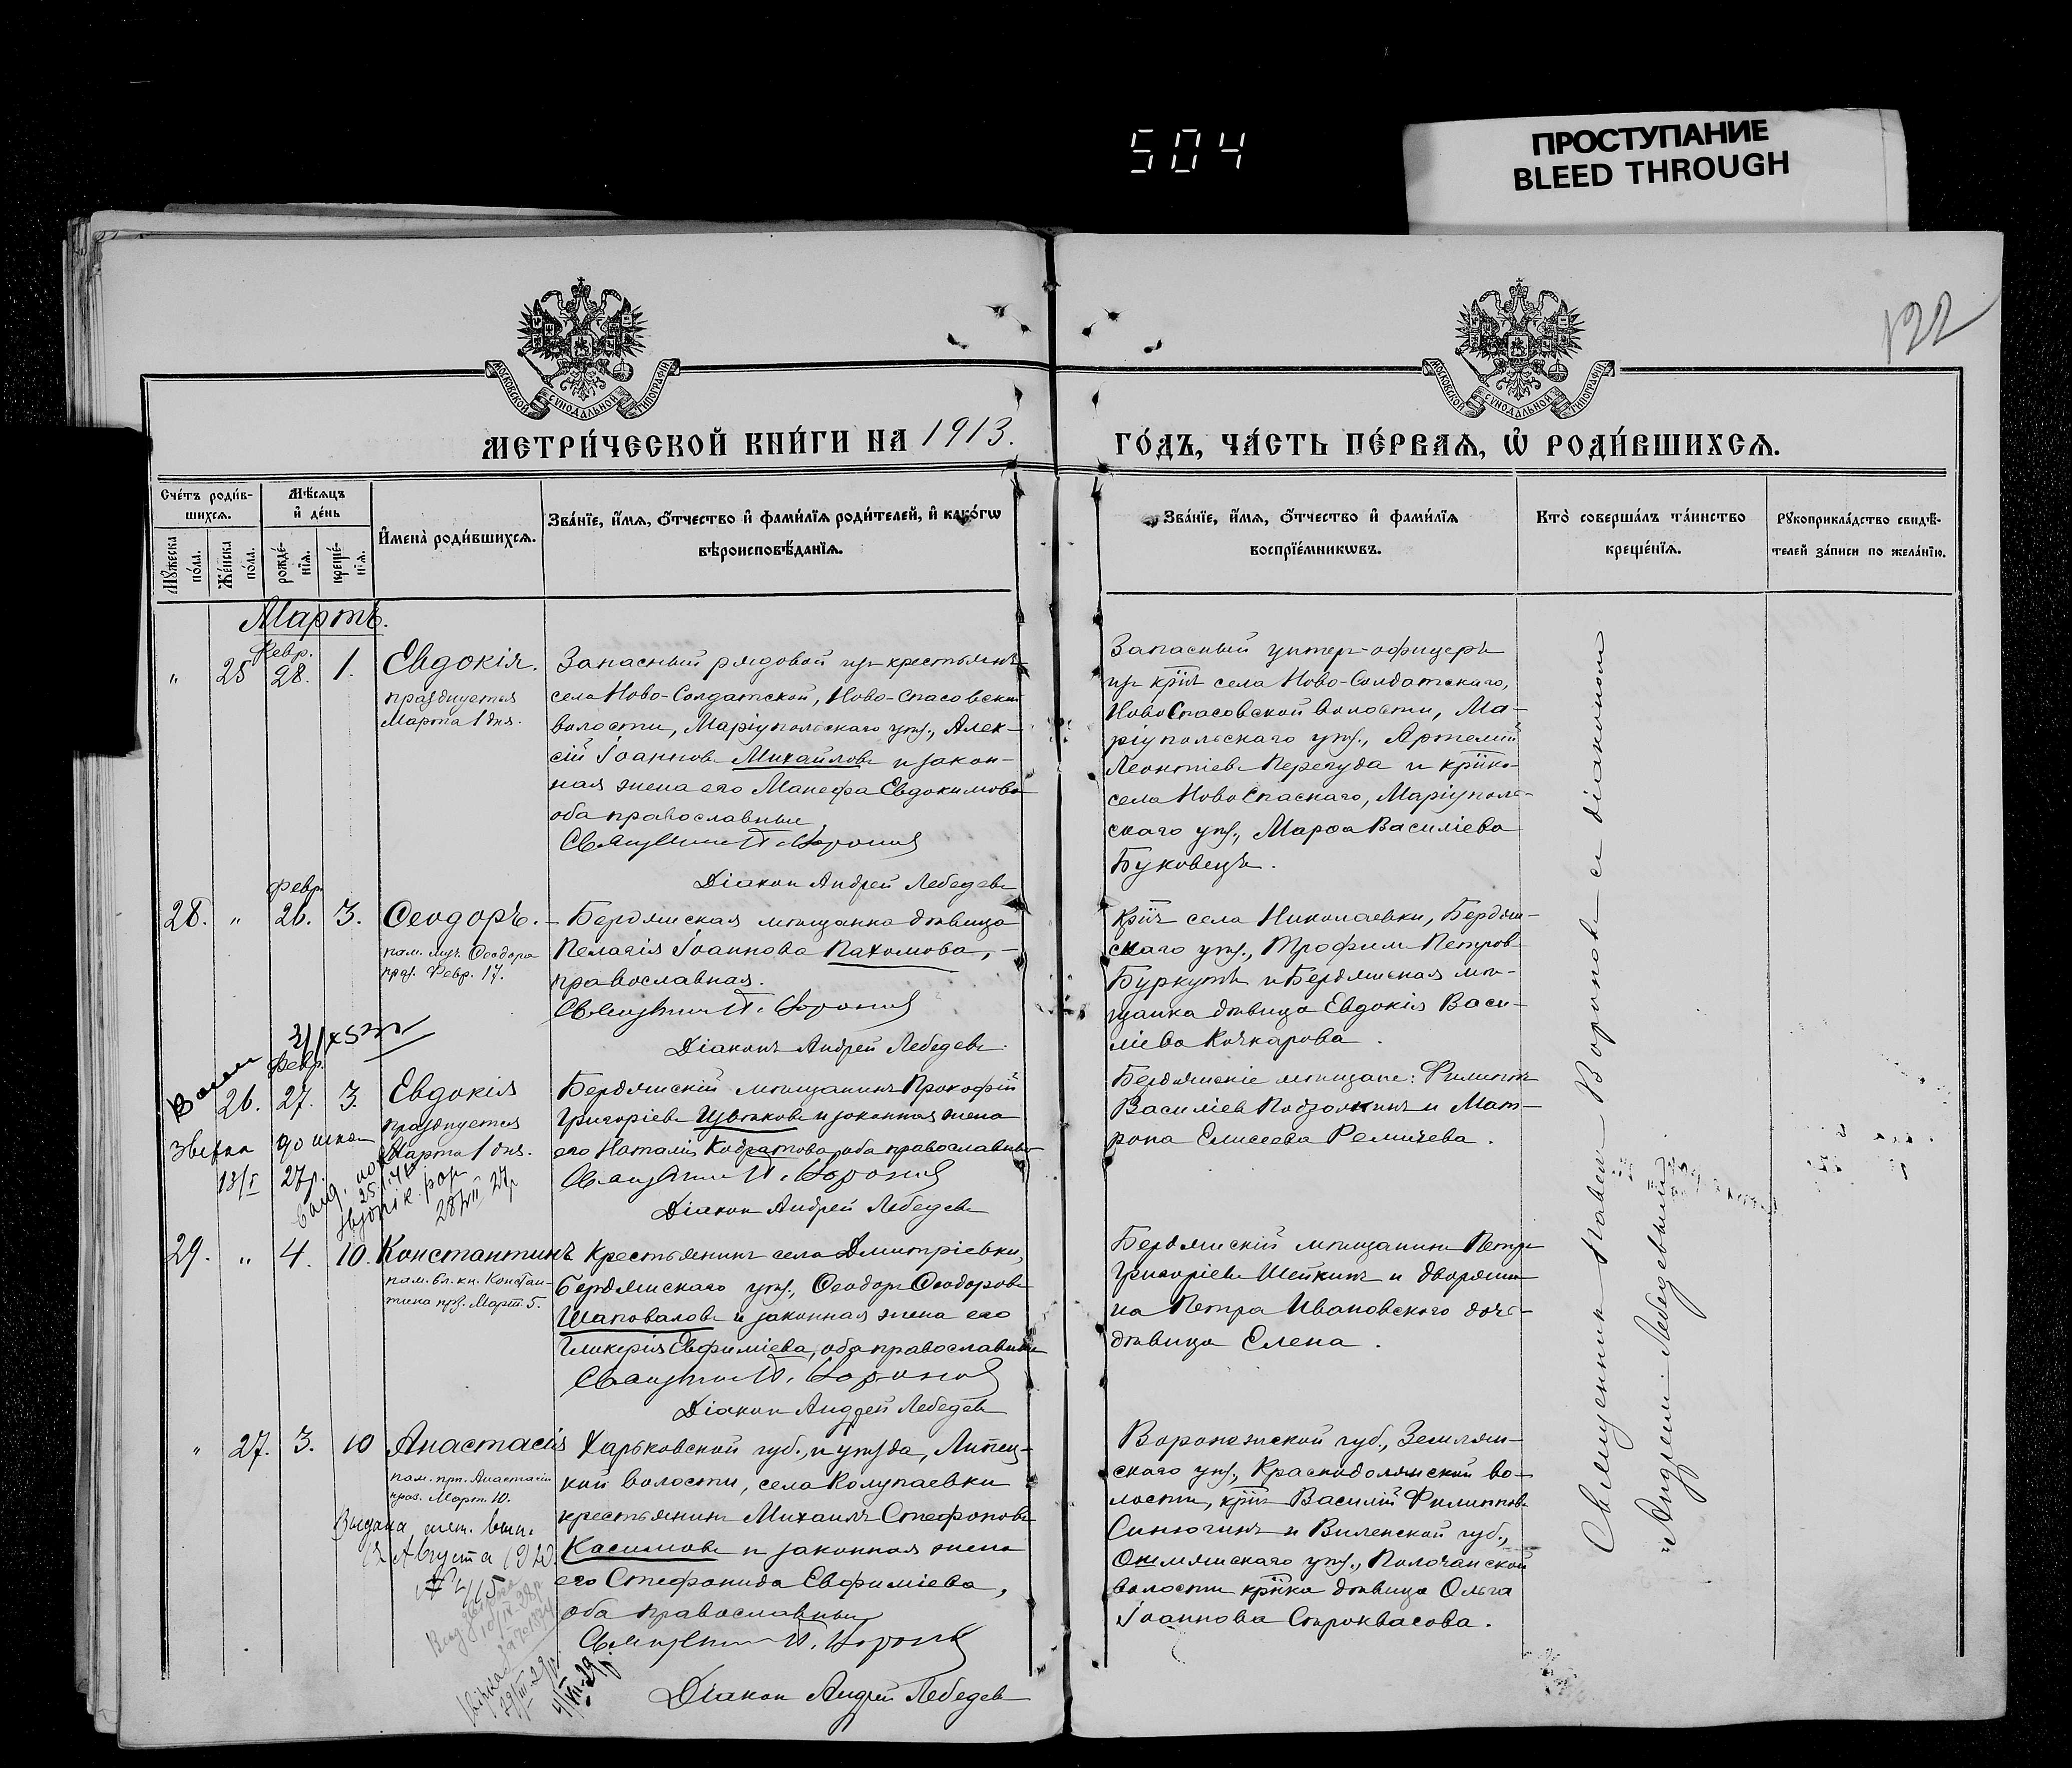 504
ПРОСТУПАНИЕ
BLEED THROUGH
122
МОСКОВСКОЙ СѴНОДАЛЬНОЙ ТИПОГРАФІИ
МОСКОВСКОЙ СѴНОДАЛЬНОЙ ТИПОГРАФІИ
МЕТРИ́ЧЕСКОЙ КНИ́ГИ НА 1913.
ГО́ДЪ, ЧА́СТЬ ПЕ́РВАѦ, Ѡ҆ РОДИ́ВШИХСѦ.
Сче́тъ роди́в-
шихсѧ.
Мꙋжеска по́ла.
Же́нска по́ла.
Мѣ́сѧцъ
и҆ де́нь
рожде́-
нїѧ.
креще́-
нїѧ.
И҆мена̀ роди́вшихсѧ.
Зва́нїе, и҆́мѧ, ѻ҆́тчество и҆ фами́лїѧ роди́телей, и҆ како́гѡ
вѣроисповѣ́данїѧ.
Зва́нїе, и҆́мѧ, ѻ҆́тчество и҆ фами́лїѧ
воспрїе́мникѡвъ.
Кто̀ соверша́лъ та́инство
креще́нїѧ.
Рꙋкоприкла́дство свидѣ́-
телей за́писи по жела́нїю.
Мартъ.
Февр.
" 25 28. 1. Евдокія.
празднуется
Марта 1 дня.
Запасный рядовой изъ крестьянъ
села Ново-Солдатской, Ново-Спасовской
волости, Маріупольскаго уѣз., Алек-
сій Іоанновъ Михайловъ и закон-
ная жена его Манефа Евдокимова
оба православные
Священникъ П. Вороновъ
Діаконъ Андрей Лебедевъ
Запасный унтеръ-офицеръ
изъ кр̃нъ села Ново-Солдатскаго,
Ново Спасовской волости, Ма-
ріупольскаго уѣз., Артемій
Леонтіевъ Перегуда и кр̃нка
села Ново Спаскаго, Маріуполь-
скаго уѣз., Марѳа Василіева
Буковецъ.
Февр.
28. " 26. 3. Ѳеодоръ.
пам. муч. Ѳеодора
праз. Февр. 17.
Бердянская мѣщанка дѣвица
Пелагія Іоаннова Пахомова,
православная.
Священникъ П. Вороновъ
Діаконъ Андрей Лебедевъ
Кр̃нъ села Николаевки, Бердян-
скаго уѣз., Трофимъ Петровъ
Буркутъ и Бердянская мѣ-
щанка дѣвица Евдокія Васи-
ліева Кочкарова.
Февр.
26. 27. 3. Евдокія
празднуется
Марта 1 дня.
13/I 27р.
Бердянскій мѣщанинъ Прокофій
Григоріевъ Цвѣтковъ и законная жена
его Наталія Кодратова, оба православные
Священникъ П. Вороновъ
Діаконъ Андрей Лебедевъ
Бердянскіе мѣщане: Филиппъ
Василіевъ и Мат-
рона Елисеева Ремичева.
29. " 4. 10. Константинъ
пам. бл. кн. Констан-
тина праз. Март. 5.
Крестьянинъ села Дмитріевки,
Бердянскаго уѣз., Ѳеодоръ Ѳеодоровъ
Шаповаловъ и законная жена его
Гликерія Евфиміева, оба православные
Священникъ П. Вороновъ
Діаконъ Андрей Лебедевъ
Бердянскій мѣщанинъ Петръ
Григоріевъ Шейкинъ и дворяни-
на Петра Ивановскаго дочь-
дѣвица Елена.
" 27. 3. 10 Анастасія
пам. прп. Анастасіи
праз. Март. 10.
Выдана мет. вып.
12 Августа 1920.
№ 415
Харьковской губ., и уѣзда, Липец-
кой волости, села Колупаевки
крестьянинъ Михаилъ Стефановъ
Касимовъ и законная жена
его Стефанида Евфиміева,
оба православные
Священникъ П. Вороновъ
Діаконъ Андрей Лебедевъ
Воронежской губ., Землян-
скаго уѣз., Краснодолинской во-
лости, кр̃нъ Василій Филипповъ
Синюгинъ и Виленской губ.,
Ошмянскаго уѣз., Полочанской
волости кр̃нка дѣвица Ольга
Іоаннова Строквасова.
Священникъ Павелъ Вороновъ съ діакономъ
Андреемъ Лебедевымъ